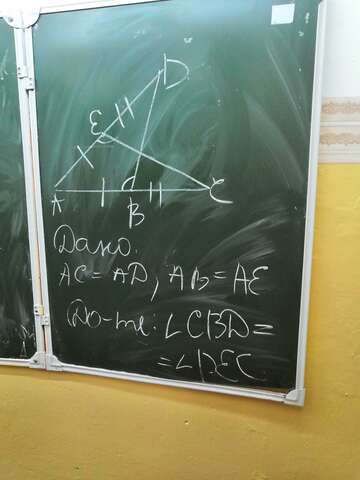 D
E
A
B
C
Дано.
AC = AD, AB = AE
До-ть: ∠CBD =
= ∠DEC.